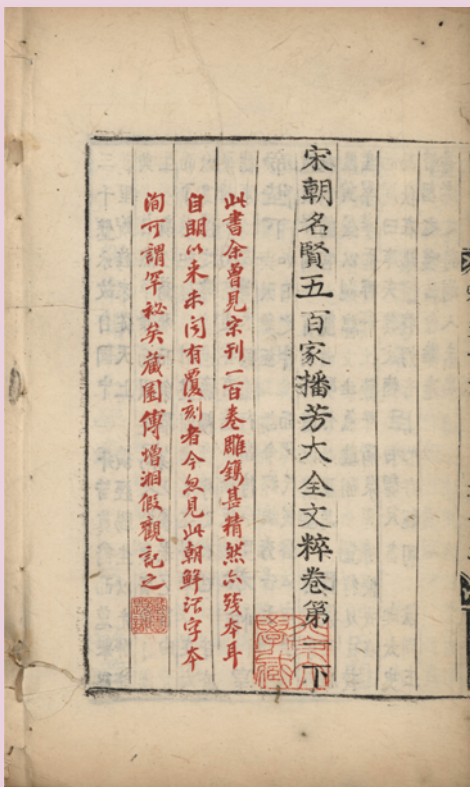 宋朝名賢五百家播芳大全文粹卷第一下
此書余曾見宋刊一百卷雕鐫甚精然亦殘本耳
自明以來未聞有覆刻者今忽見此朝鮮活字本
洵可謂罕祕矣藏園傅增湘假觀記之